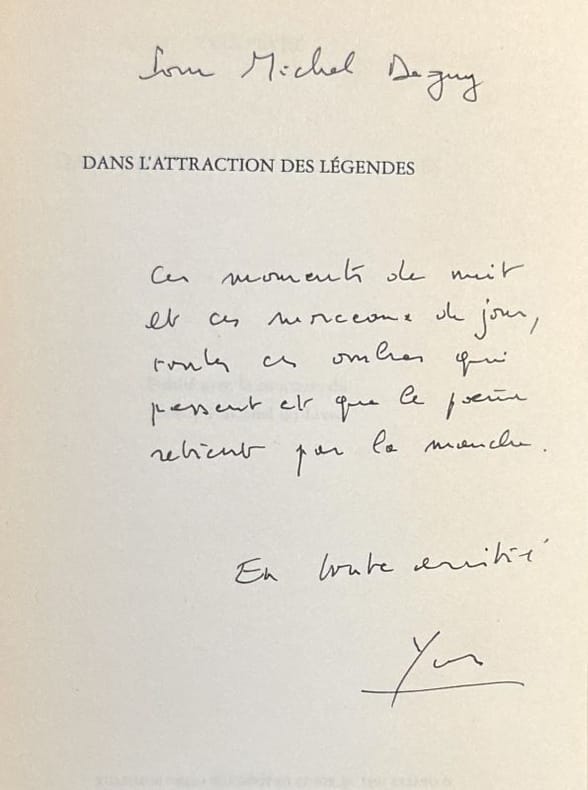 Pour Michel Deguy
DANS L'ATTRACTION DES LÉGENDES
Ces moments de nuit
et ces morceaux de jour,
toutes ces ombres qui
passent et que le poème
retient par la manche.
En toute amitié
Yves